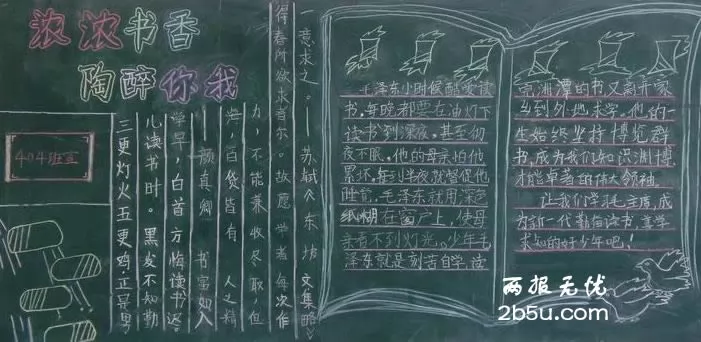 浓浓书香
陶醉你我
404班宣
三更灯火五更鸡,正是男
儿读书时。黑发不知勤
学早,白首方悔读书迟。
——颜真卿 书富如入
海,百货皆有 人之精
力,不能兼收尽取,但
得春所欲求者尔。故愿学者每次作
一意求之。——苏轼《东坡文集略》
毛泽东小时候酷爱读
书,每晚都要在油灯下
读书到深夜,甚至彻
夜不眠,他的母亲怕他
累坏,每到半夜就督促他
睡觉,毛泽东就用深色
纸糊在窗户上,使母
亲看不到灯光。少年毛
泽东就是刻苦自学,读
完湘潭的书又离开家
乡到外地求学。他的一
生始终坚持博览群
书,成为我们知识渊博
才能卓著的伟大领袖。
让我们学习毛主席,成
为新一代勤奋读书,喜学
求知的好少年吧!
两报无忧
2b5u.com